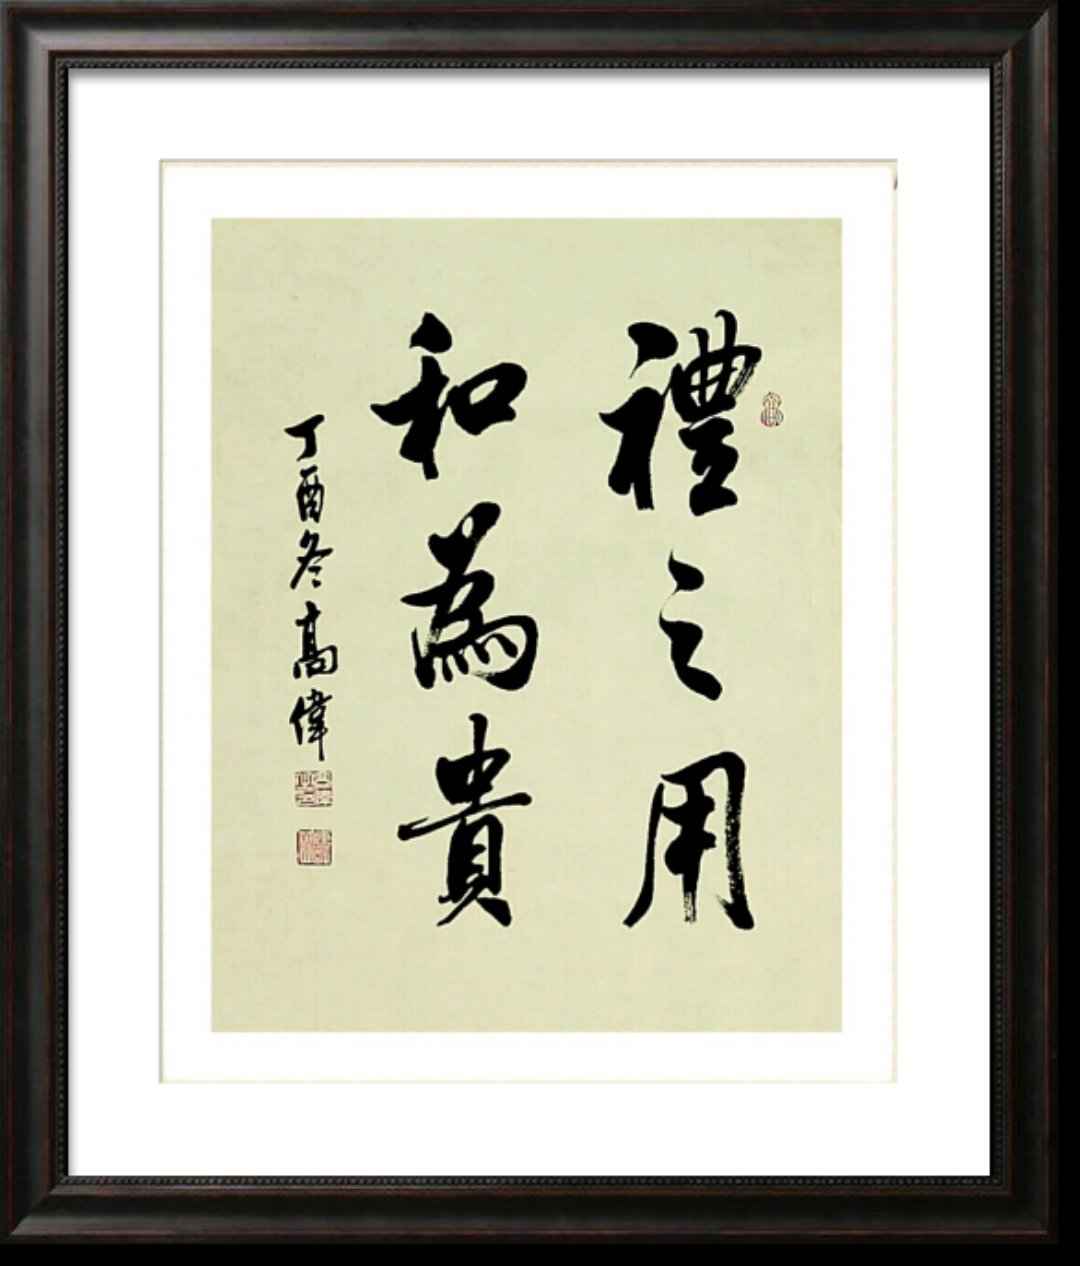 禮之用
和為貴
丁酉冬高偉